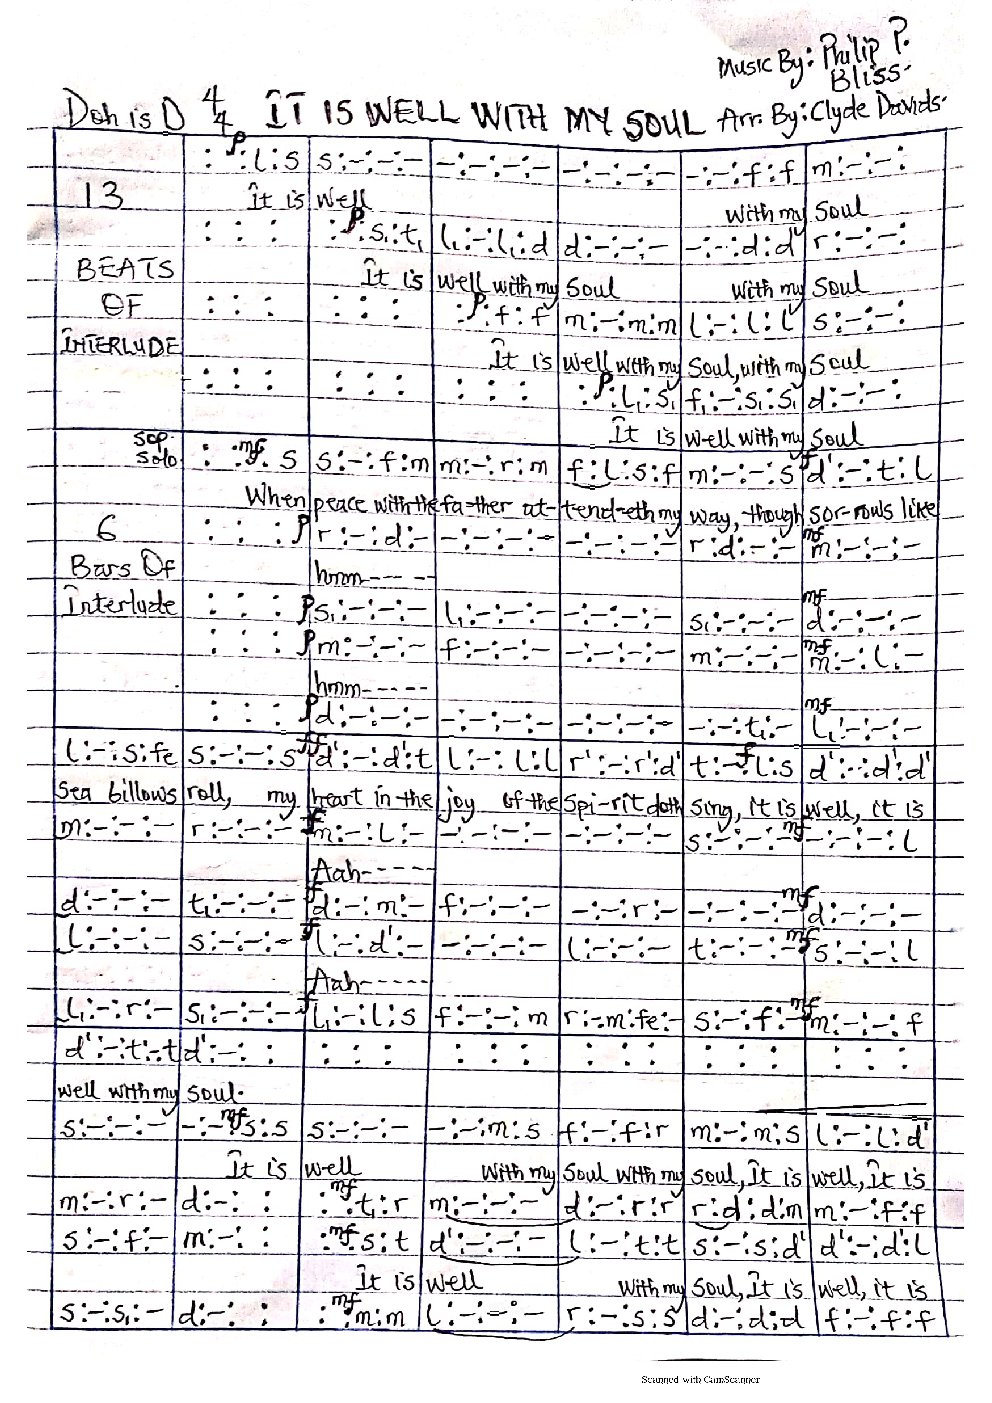 Music By: Philip P.
Bliss.
Doh is D 4/4 IT IS WELL WITH MY SOUL Arr. By: Clyde Davids.
: p:l:s s:-:-:- -:-:-:- -:-:-:- -:-:f:f m:-:-:
13 It is well with my Soul
: : : :p:s₁:t₁ l₁:-:l₁:d d:-:-:- -:-:d:d r:-:-:
BEATS It is well with my Soul with my Soul
OF : : : : : : :p:f:f m:-:m:m l:-:l:l s:-:-:
INTERLUDE It is well with my Soul, with my Soul
: : : : : : : : : :p:l₁:s₁ f₁:-:s₁:s₁ d:-:-:
It is well with my Soul
Sop. Solo : :mf:s s:-:f:m m:-:r:m f:l:s:f m:-:-:s f d':-:t:l
When peace with the fa-ther at-tend-eth my way, though sor-rows like
6 : : : p r:-:d:- -:-:-:- -:-:-:- r:d:-:- mf m:-:-:-
Bars Of hmm-----
Interlude : : : p s₁:-:-:- l₁:-:-:- -:-:-:- s₁:-:-:- mf d:-:-:-
: : : p m:-:-:- f:-:-:- -:-:-:- m:-:-:- mf m:-:l:-
hmm-----
: : : p d:-:-:- -:-:-:- -:-:-:- -:-:t₁:- mf l₁:-:-:-
l:-:s:fe s:-:-:s ff d':-:d':t l:-:l:l r':-:r':d' t:-f:l:s d':-:d':d'
Sea billows roll, my heart in the joy of the Spi-rit doth sing, it is well, it is
m:-:-:- r:-:-:- f m:-:l:- -:-:-:- -:-:-:- s:-:-:- mf -:-:-:l
Aah-----
d:-:-:- t₁:-:-:- f d:-:m:- f:-:-:- -:-:r:- -:-:-:- mf d:-:-:-
l:-:-:- s:-:-:- f l:-:d':- -:-:-:- l:-:-:- t:-:-:- mf s:-:-:l
Aah-----
l₁:-:r:- s₁:-:-:- f l₁:-:l:s f:-:-:m r:-:m:fe:- s:-:f:- mf m:-:-:f
d':-:t:-t d':-: : : : : : : : : : : : : : : : :
well with my soul.
s:-:-:- -:-mf:s:s s:-:-:- -:-:m:s f:-:f:r m:-:m:s l:-:l:d'
It is well with my Soul with my soul, It is well, It is
m:-:r:- d:-: : :mf:t₁:r m:-:-:- d:-:r:r r:d:d:m m:-:f:f
s:-:f:- m:-: : :mf:s:t d':-:-:- l:-:t:t s:-:s:d' d':-:d':l
It is well with my Soul, It is well, it is
s:-:s₁:- d:-: : :mf:m:m l:-:-:- r:-:s:s d:-:d:d f:-:f:f
Scanned with CamScanner